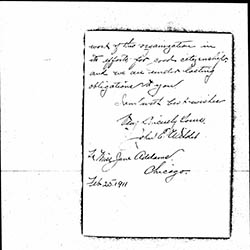 work of this organization in
its efforts for good citizenship
and we are under lasting
obligations to you
I am with best wishes
Very Sincerely Yours
John C.
To Miss Jane Addams
Chicago.
Feb 20 1911